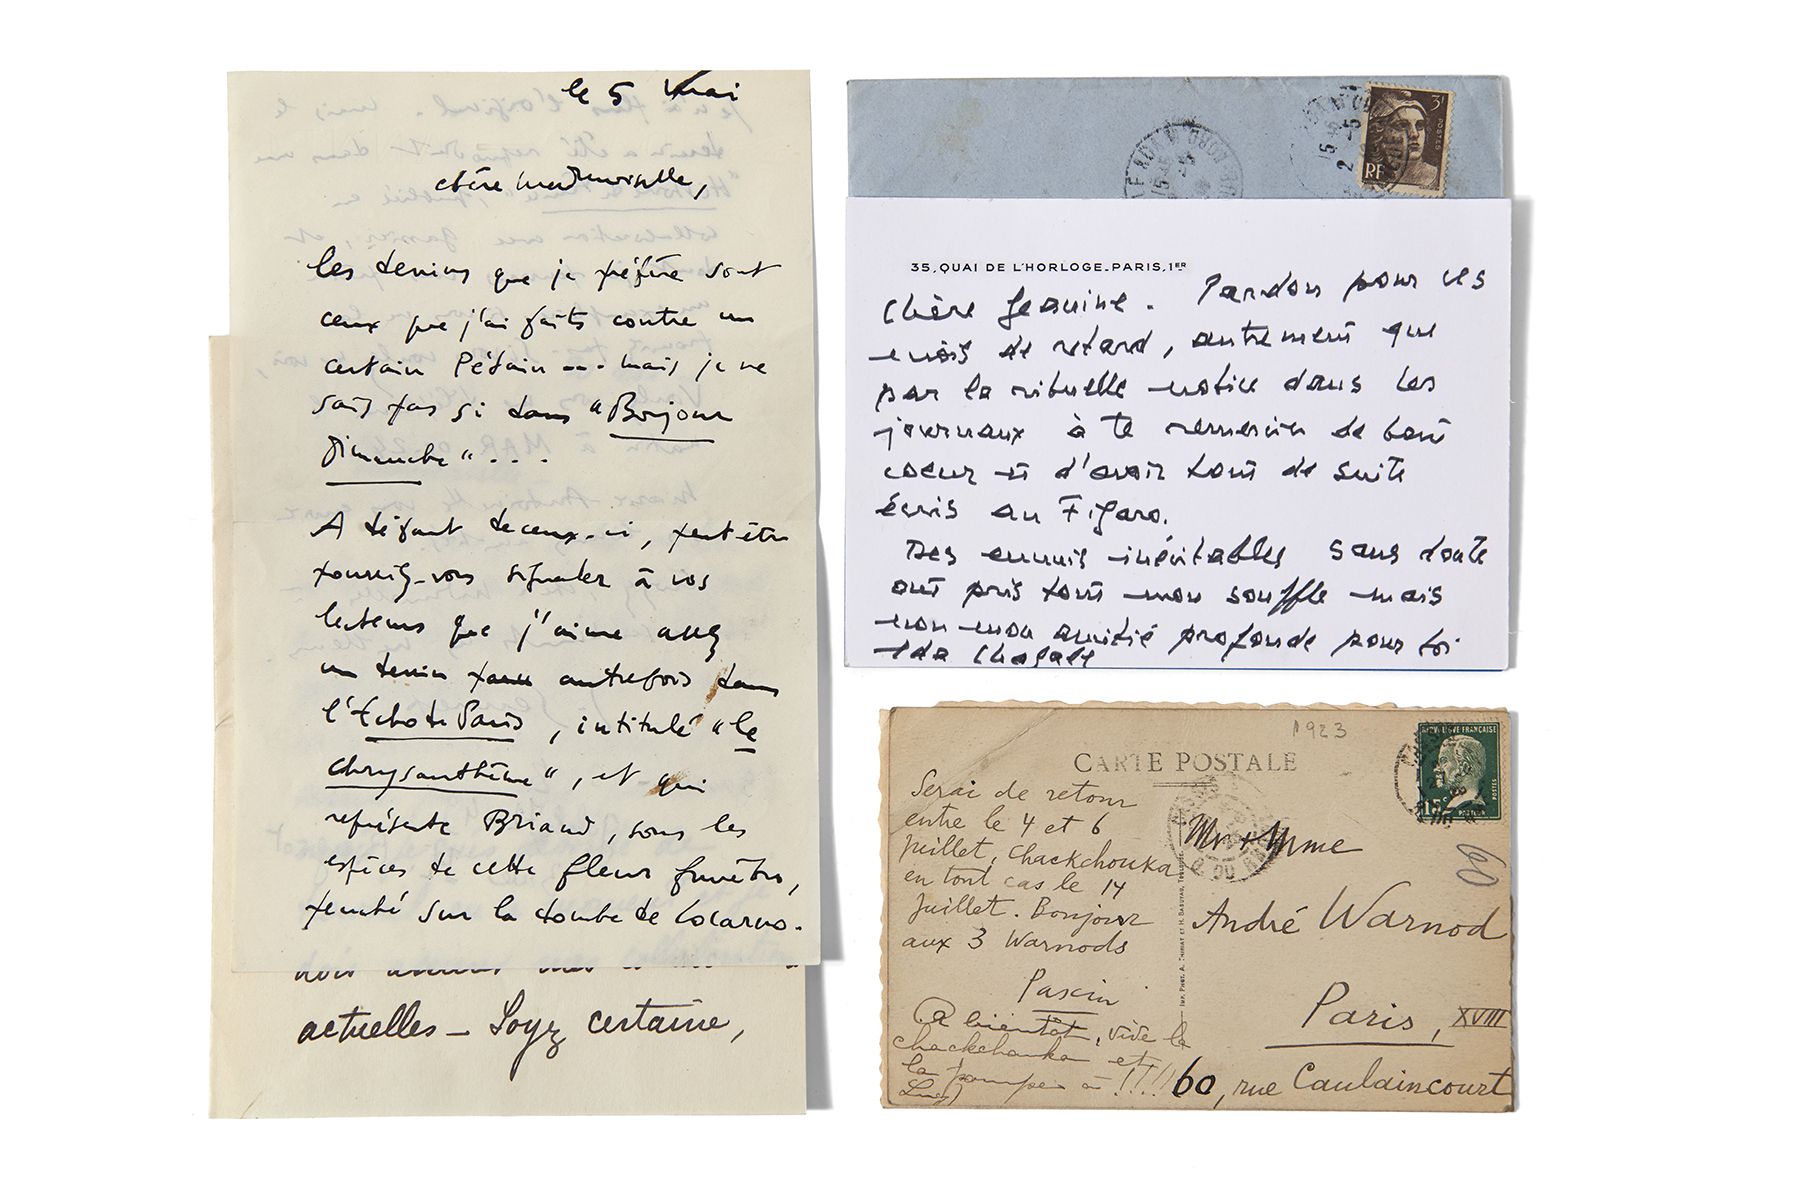 le 5 mai
chère mademoiselle,
les dessins que je préfère sont
ceux que j'ai faits contre un
certain Pétain --- mais je ne
sais pas si dans "Bonjour
Dimanche" ....
A défaut de ceux-ci, peut-être
pourriez-vous signaler à vos
lecteurs que j'aime assez
un dessin paru autrefois dans
l'Echo de Paris, intitulé "le
chrysanthème", et qui
représente Briand, sous les
espèces de cette fleur funèbre,
penché sur la tombe de Locarno.
actuelles – Soyez certaine,
3F
POSTES
RF
35, QUAI DE L'HORLOGE_PARIS, 1ER
Chère Jeanine. Pardon pour ces
mois de retard, autrement que
par la rituelle notice dans les
journaux à te remercier de tout
coeur et d'avoir tout de suite
écris au Figaro.
Des ennuis inévitables sans doute
ont pris tout mon souffle mais
non mon amitié profonde pour toi
Ida Chagall
1923
CARTE POSTALE
REPUBLIQUE FRANÇAISE
15c
POSTES
PASTEUR
Serai de retour
entre le 4 et 6
juillet, Chackchouka
en tout cas le 14
juillet. Bonjour
aux 3 Warnods
Pascin
A bientôt, vive la
chackchouka et
la pompe à !!!!
Lucy
Mr + Mme
André Warnod
Paris, XVIII
60, rue Caulaincourt